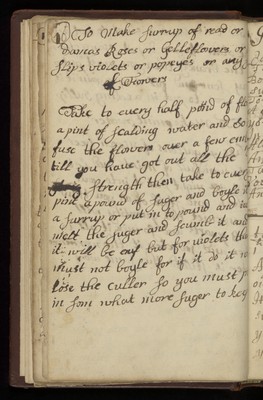 To Make surrup of read or
damas Roses or Gelleflowers or
slips violets or popeyes or any
of flowers
Take to every half pond of
a pint of scalding water and so
fuse the flowers over a few em
till you have got out all the
strength then take to ever
pint a pound of suger and boyle it
a surrup or put in to pound and
melt the suger and scumb it and
it will be ouf but for violets th
must not boyle for if it do it w
lose the culler so you must p
in som what more suger to kep